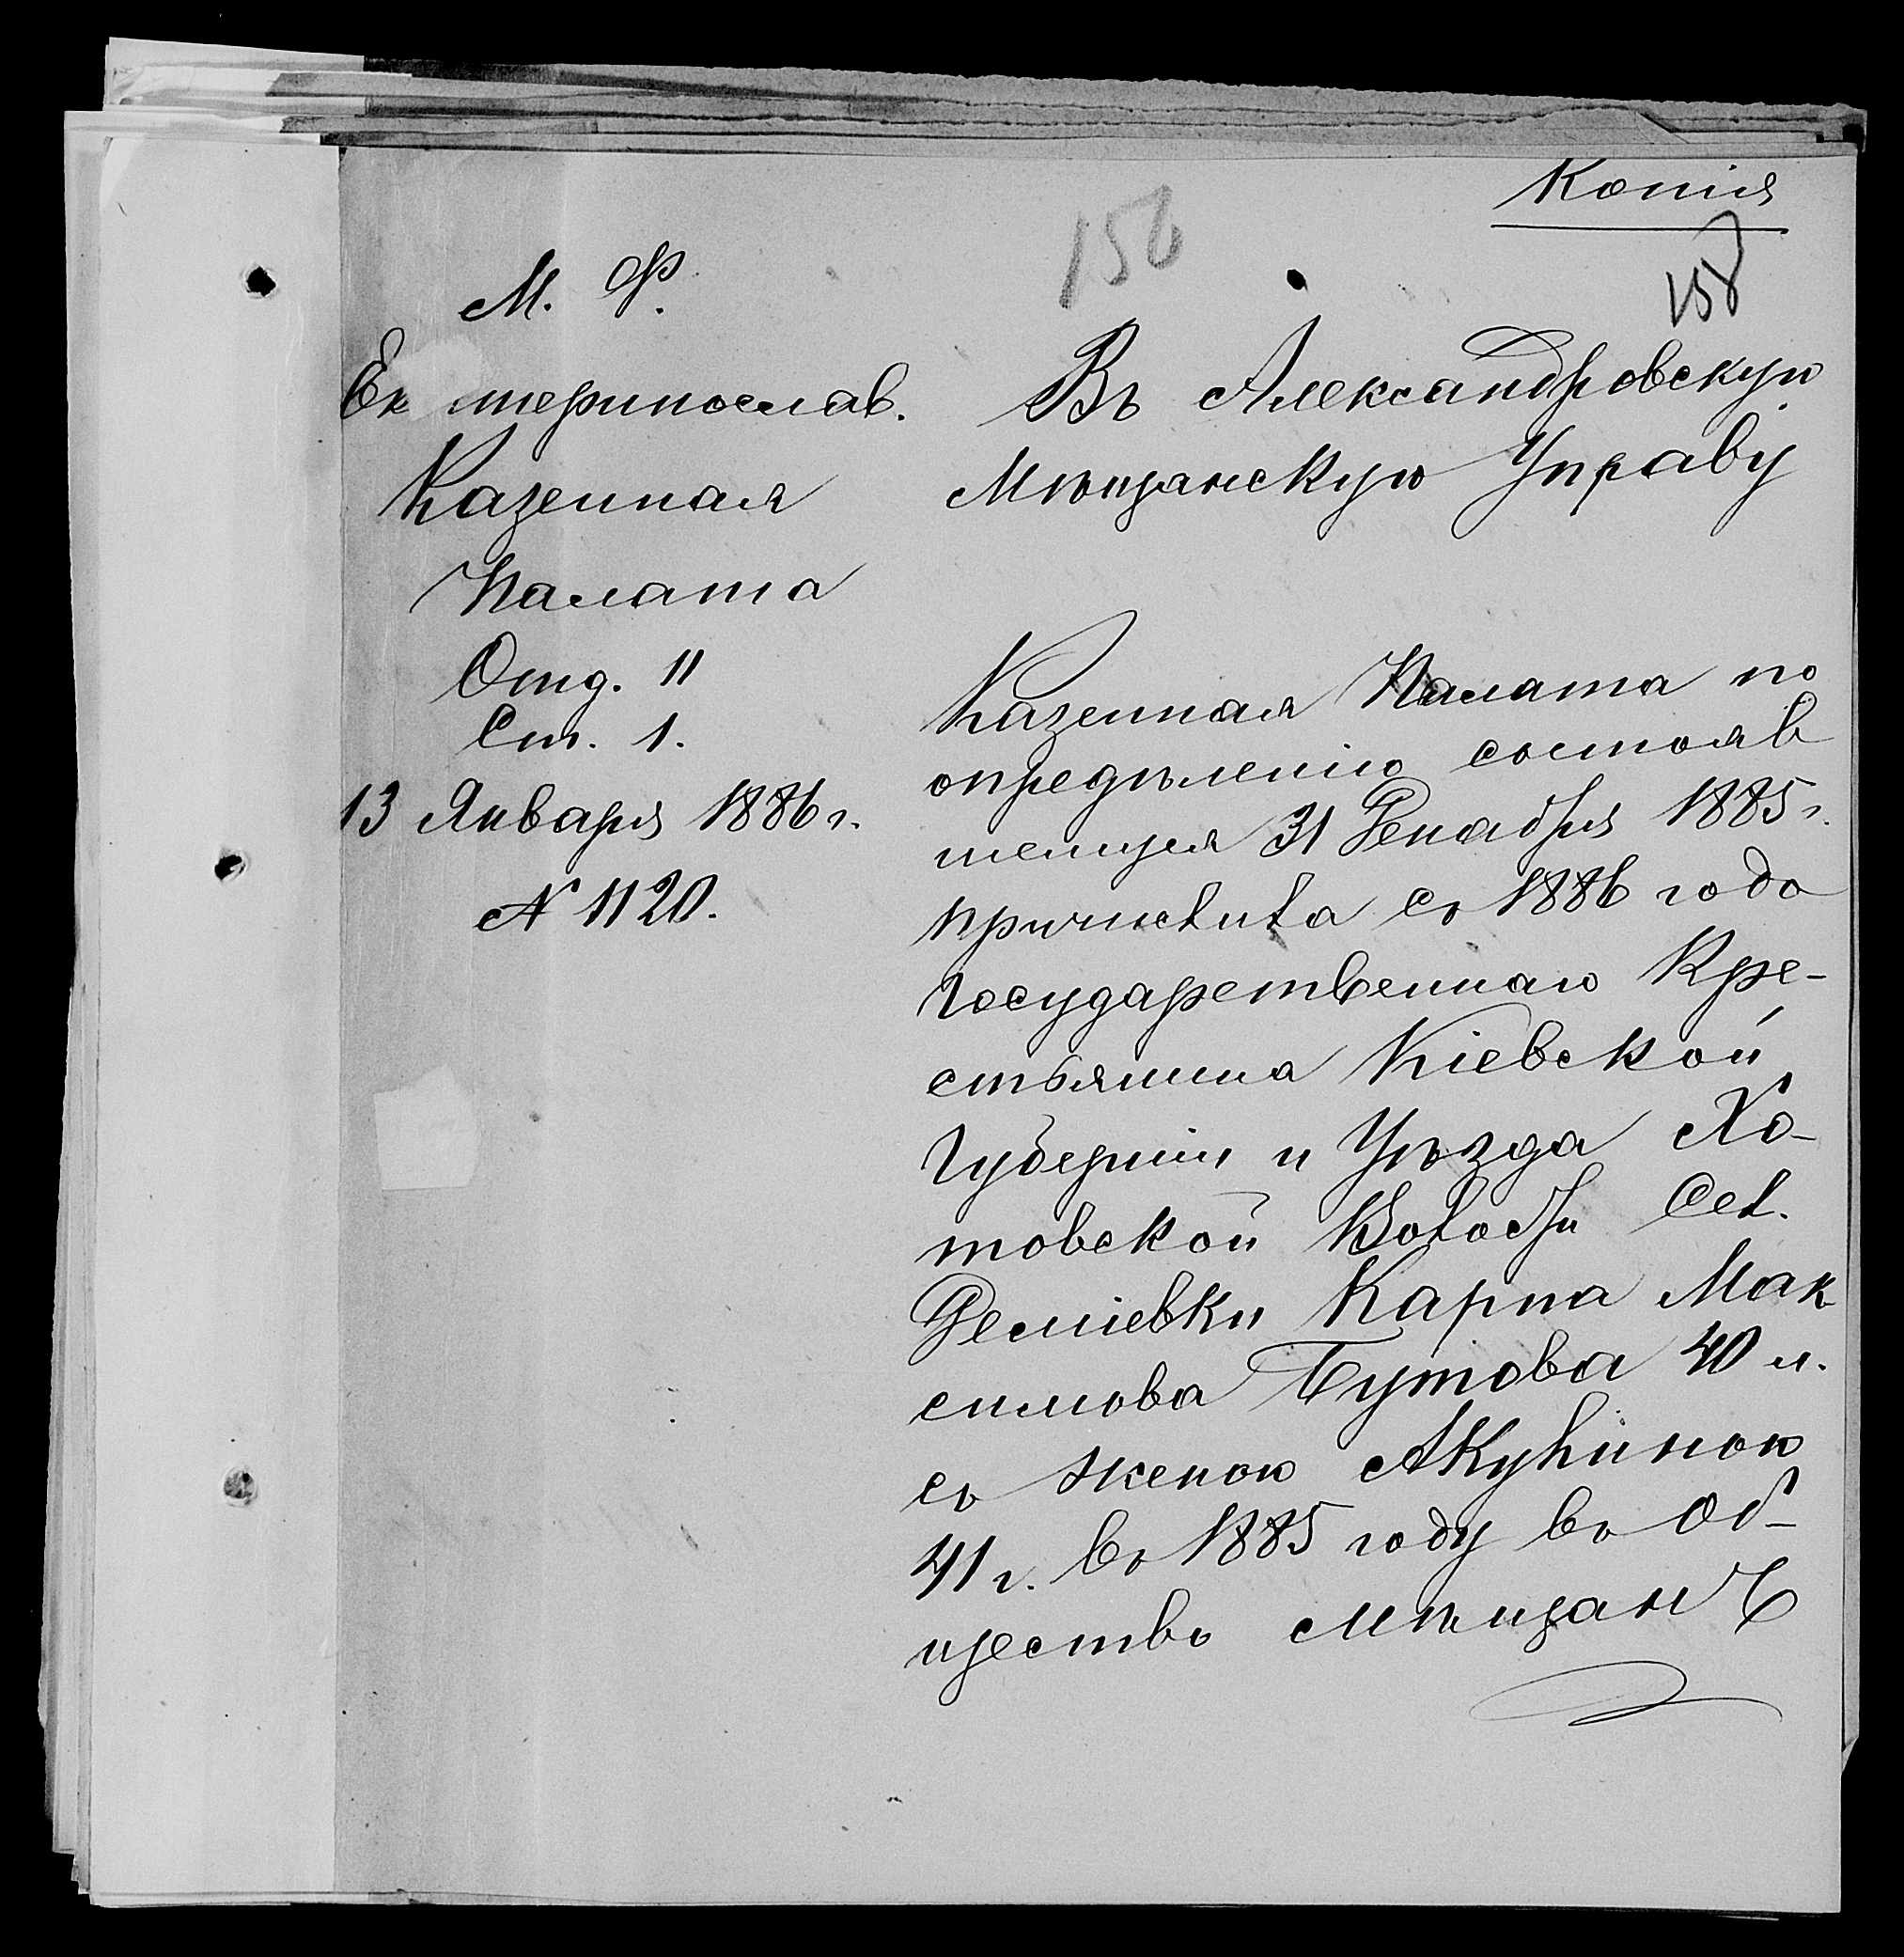 Копія
156
158
М. Ф.
Ек териннослав.
Казенная
Палата
Отд. II
Ст. 1.
13 Января 1886 г.
№ 1120.
Въ Александровскую
Мѣщанскую Управу
Казенная Палата по
опредѣленію состояв
шемуся 31 Декабря 1885 г.
причислила съ 1886 года
Государственнаго Кре-
стьянина Кіевской
Губерніи и Уѣзда Хо-
товской Волости Сел.
Деміевки Карпа Мак
симова Бутова 40 л.
съ женою Акулиною
41 г. въ 1885 году въ Об-
щество мѣщанъ